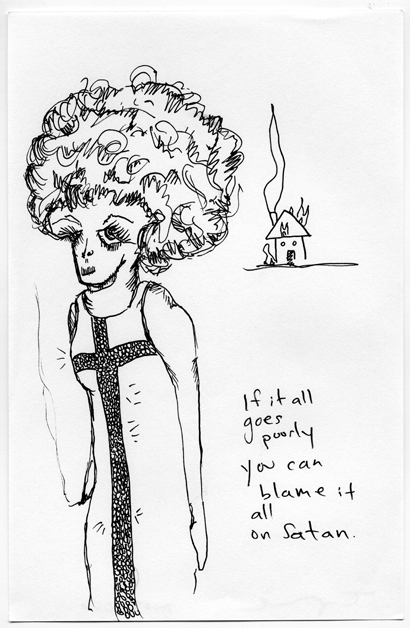 If it all
goes
poorly
you can
blame it
all
on Satan.